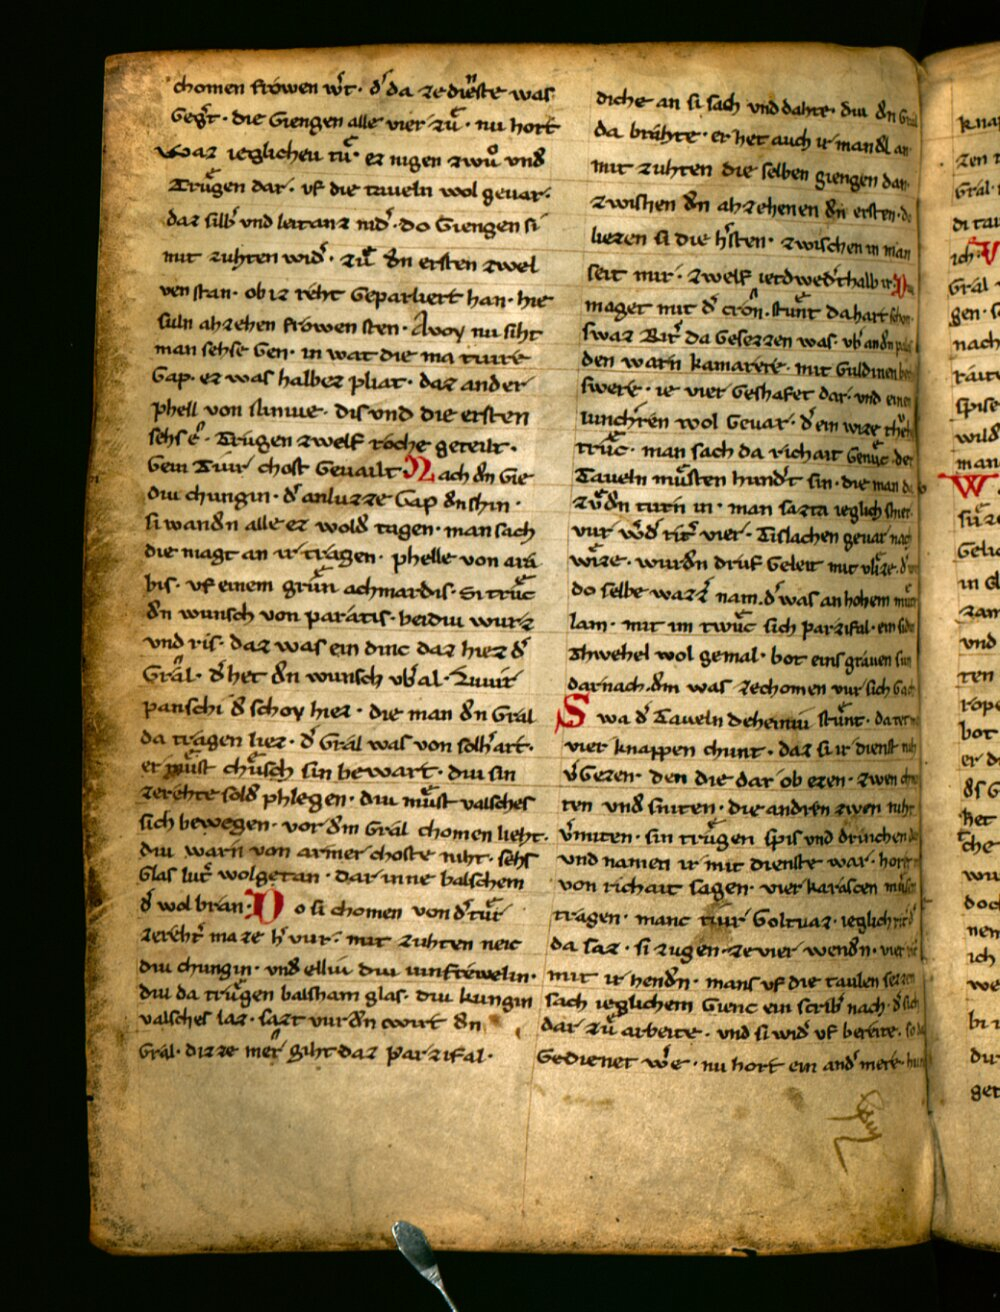 chomen frówen wͤt. dͤ da ze dieste was
Gegͤt. die Giengen alle vier zuͤ. nu hort
waz ieglicheu tuͤ. ez nigen zwuͦ und
Truͤgen dar. uf die taueln wol geuar.
daz silbͤ und leitanz nidͤ. do Giengen si
mit zuhten widͤ. zuͤ dͤn ersten zwel
uen stan. ob iz reht Geparliert han. hie
suln ahzehen frówen sten. Avoy nu siht
man sehse Gen. in wat die ma tiure
Gap. ez was halbez pliat. daz ander
phell von ninniue. dis und die ersten
sehse. Truͤgen zwelf róche geteilt.
Gein Tiur chost Geuailt. Nach dͤn Gie
diu chungin. dͤ anluzze Gap dͤn shin.
si wandͤn alle ez woldͤ tagen. man sach
die magt an ir trágen. phelle von ara
bis. uf einem gruͤn achmardis. si truͤc
dͤn wunsch von paratis. beidiu wurz
und ris. daz was ein dinc daz hiez dͤ
Grál. dͤ het dͤn wunsch ubͤ al.
panschi dͤ schoy hiez. die man dͤn Grál
da trágen liez. dͤ Grál was von solhͤ art.
er muͤst chuͤsch sin bewart. diu sin
zerehte soldͤ phlegen. diu muͤst valsches
sich bewegen. vor dͤm Grál chomen lieht.
diu warn von armer choste niht. sehs
Glas lutͤ wolgetan. dar inne balschem
dͤ wol bran. Do si chomen von dͤ tuͤr
zerehtͤ maze hͤ vur. mit zuhten neic
diu chungin. und elliu diu iunfrewelin.
diu da truͤgen balsham glas. diu kungin
valsches laz. sazt vur dͤn wirt dͤn
Grál. dizze merͤ giht daz parzifal.
diche an si sach und dahte. diu dͤn Gral
da brahte. er het auch ir mandͤl an
mit zuhten die selben giengen dan
zwishen dͤn ahzehenen dͤn ersten. do
liezen si die hͤsten. zwischen in man
seit mir. zwelf ietdwedͤthalb ir. D
maget mit dͤ crón. stuͤnt da hart schon.
swaz Ritͤ da Gesezzen was. ubͤ andͤn palas
den warn kamarere. mit Guldinen
swere. ie vier Geshafet dar. und einen
iunchͤren wol Geuar. dͤ ein wize
truͤc. man sach da richait Genuͤc. der
Taueln muͤsten hundͤt sin. die man da
zuͦ dͤn turn in. man sazta ieglich shier
vur wͤdͤ ritͤ vier. Tislachen geuar nach
wize. wurdͤn druf Geleit mit vlize.
do selbe wazzͤ nam. dͤ was an hohem muͤt
lam. mit im twuͤc sich parzifal. ein side
Thwehel wol gemal. bot eins gráuen sun
darnach. dͤm was ze chomen vur sich
Swa dͤ Taueln deheiniu stuͤnt. da
vier knappen chunt. daz si ir dienst niht
vͤgezen. den die dar ob ezen. zwen
ten und sniten. die andren zwen niht
vͤmiten. sin truͤgen spis und drinchen
und namen ir mit dienste war. hort
von richait sagen. vier karáscen muͤsen
trágen. manc tiur Goltuaz. ieglich
da saz. si zugen ze vier wendͤn. vier
mit ir hendͤn. mans uf die taulen sezzen
sach ieglichem Gienc ein scribͤ nach.
dar zuͤ arbeite. und si widͤ uf bereite.
Gedienet wͤe. nu hort ein andͤ mere.